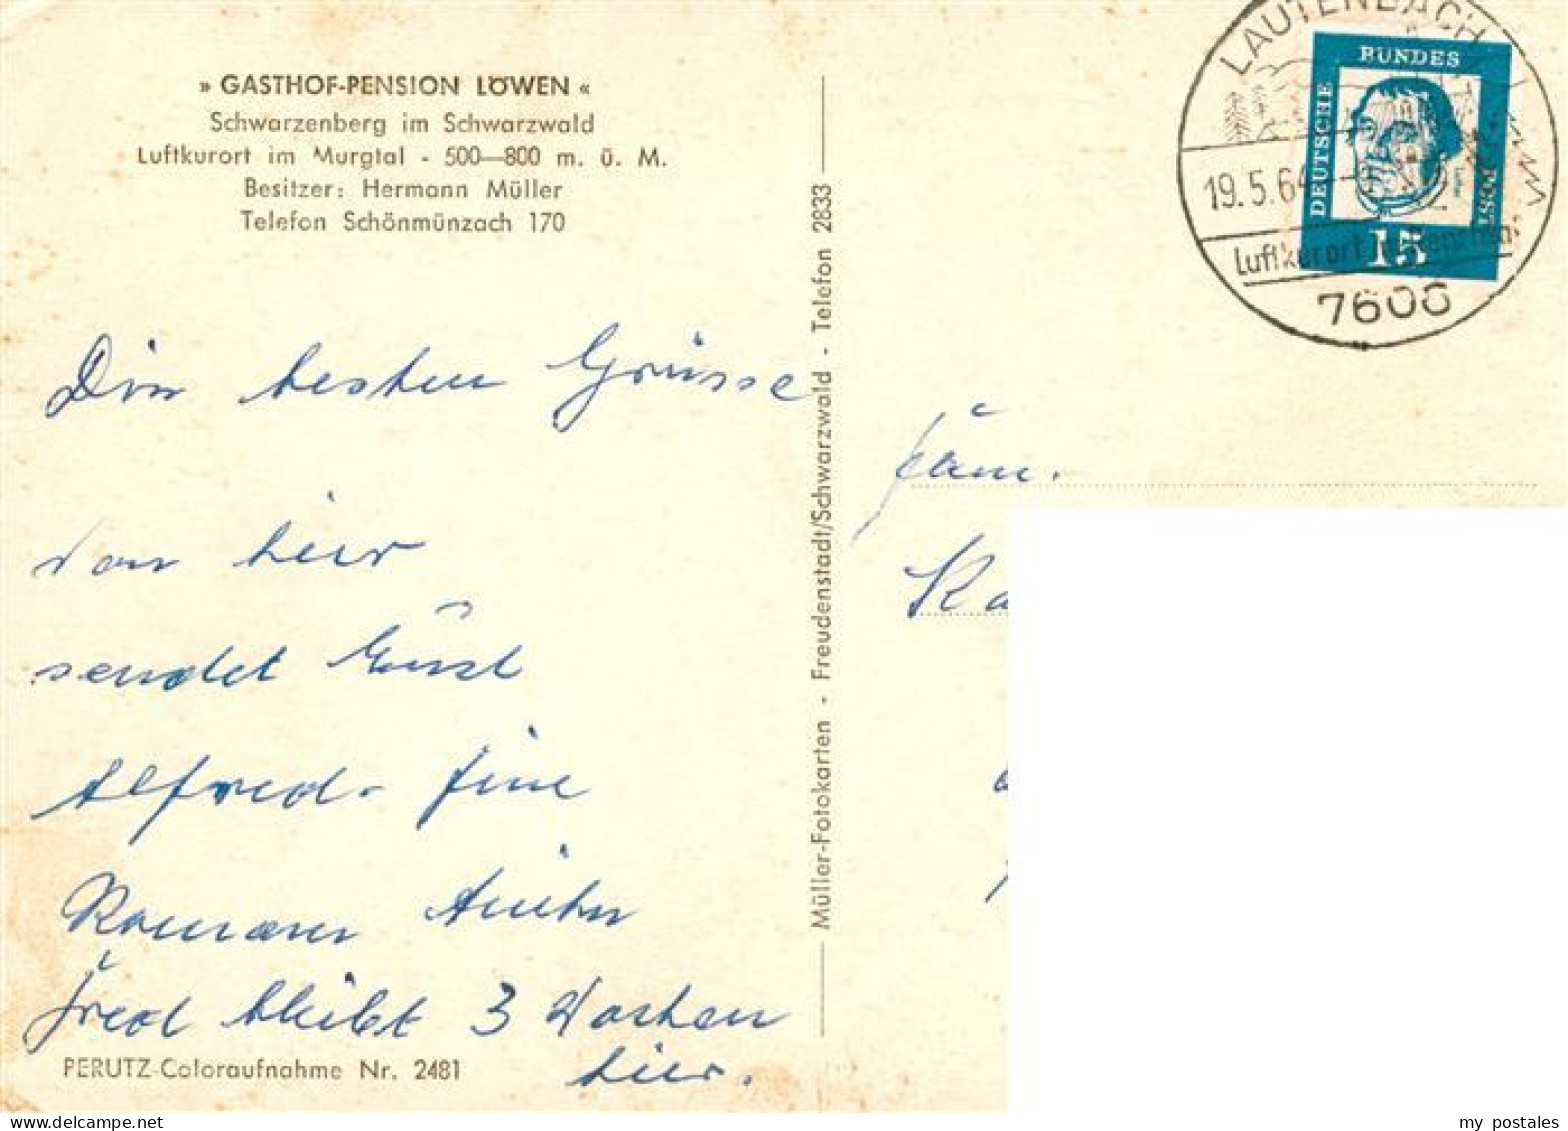 » GASTHOF-PENSION LÖWEN «
Schwarzenberg im Schwarzwald
Luftkurort im Murgtal - 500—800 m. ü. M.
Besitzer: Hermann Müller
Telefon Schönmünzach 170
Die besten Grüsse
von hier
sendet Euch
Alfred.
Fred bleibt 3 Wochen
hier.
PERUTZ-Coloraufnahme Nr. 2481
Müller-Fotokarten - Freudenstadt/Schwarzwald - Telefon 2833
LAUTENBACH
19.5.64
Luftkurort im Renchtal
7606
DEUTSCHE
BUNDES
POST
15
Fam.
my postales